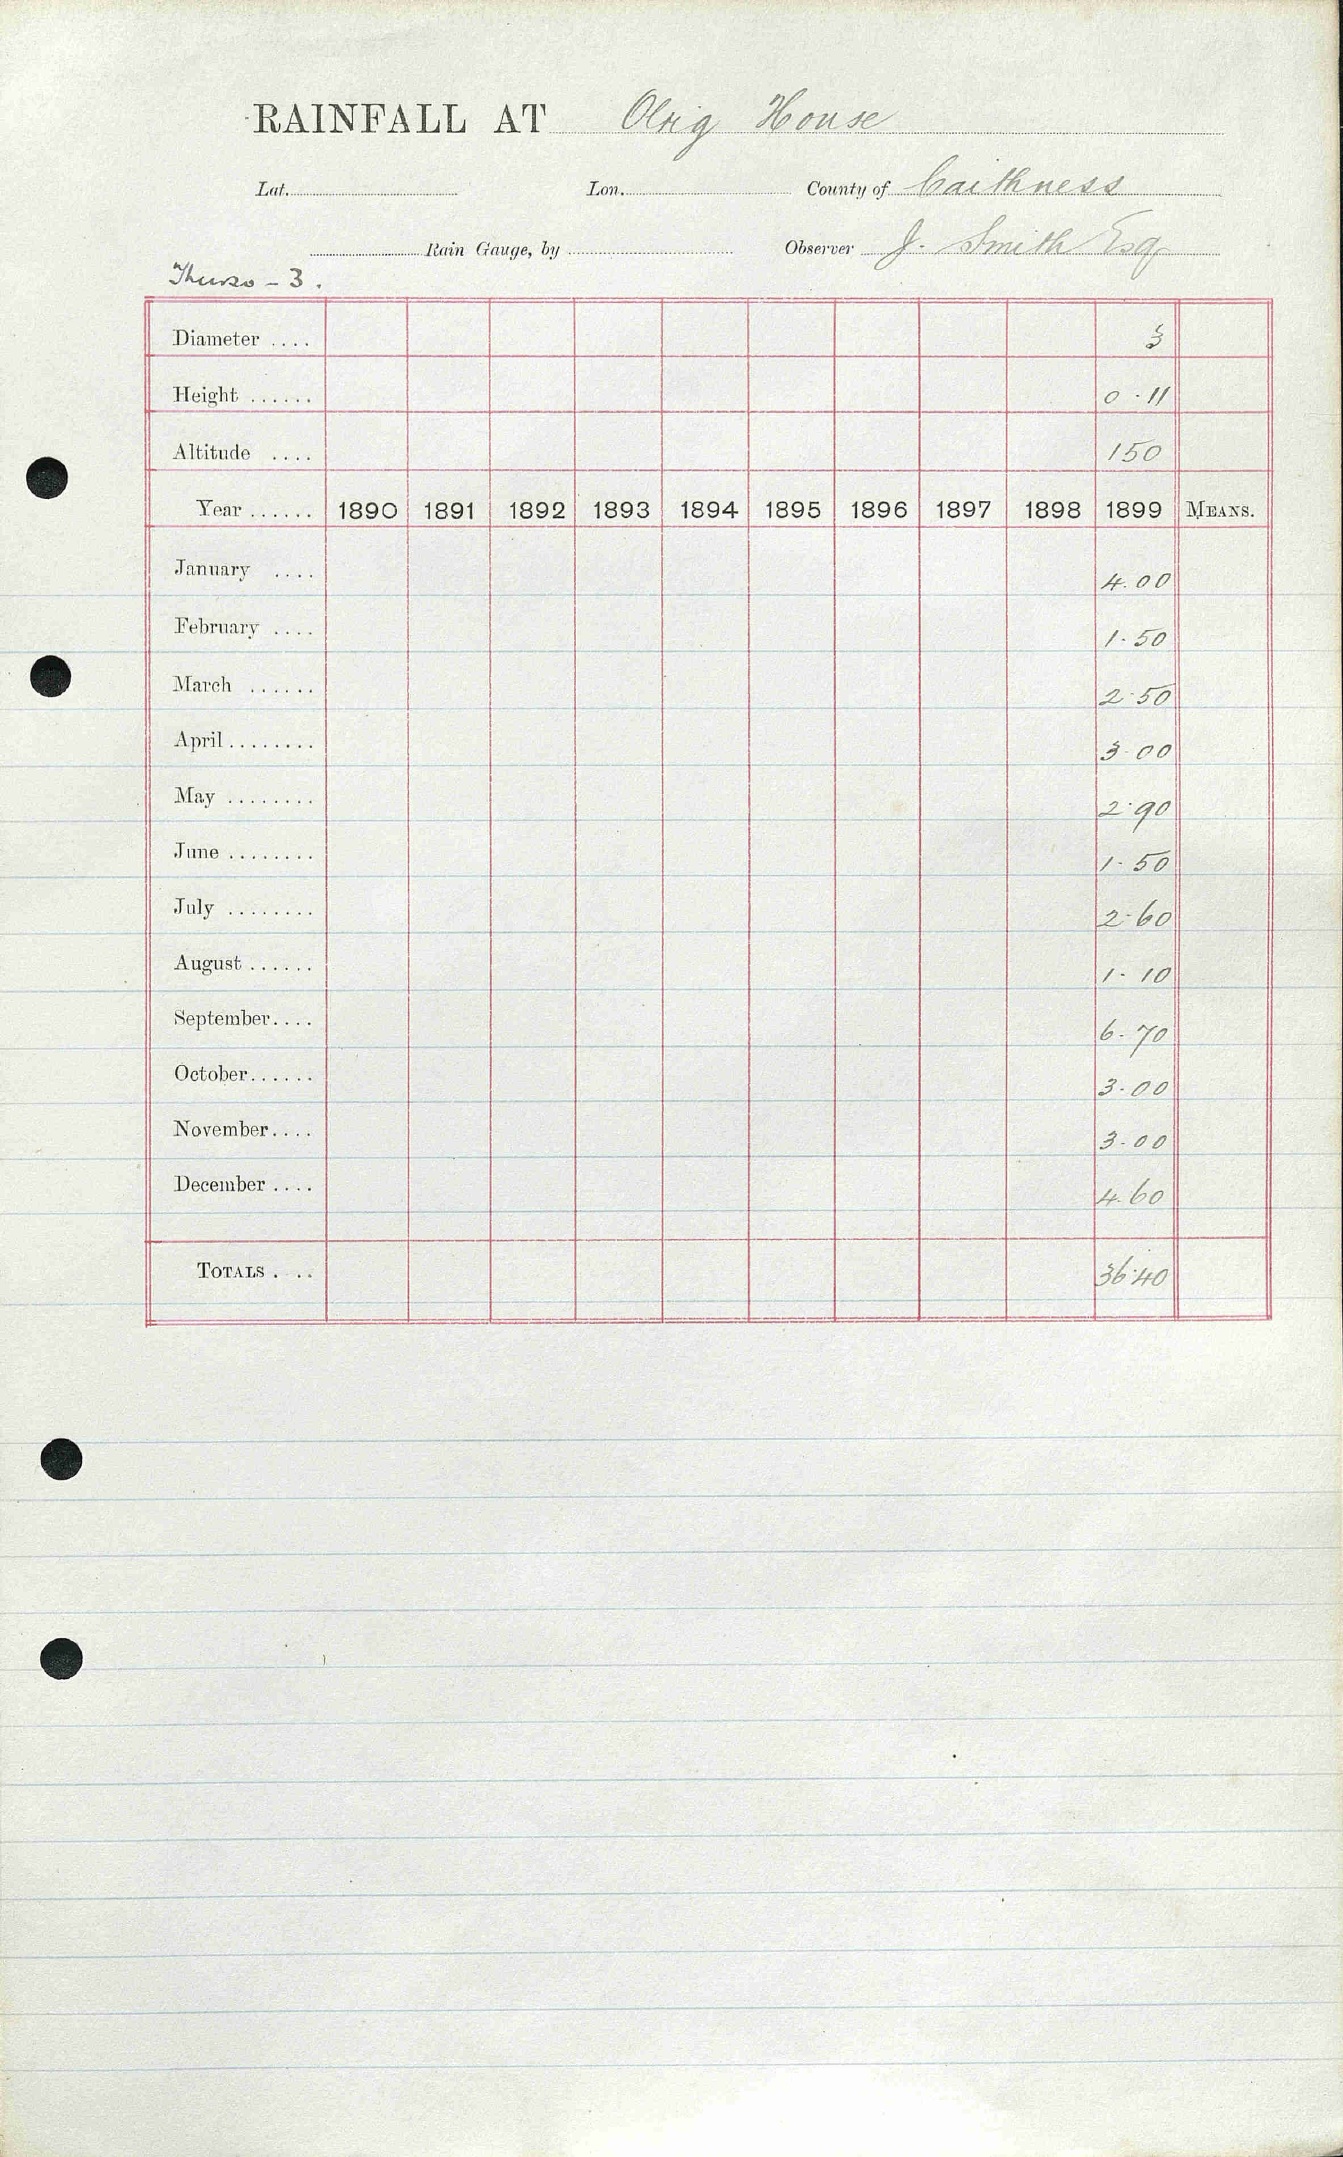 RAINFALL AT Olrig House
Lat. Lon. County of Caithness
Rain Gauge, by Observer J. Smith Esq
Thurso - 3.
Diameter .... 3
Height ...... 0.11
Altitude .... 150
Year ...... 1890 1891 1892 1893 1894 1895 1896 1897 1898 1899 MEANS.
January .... 4.00
February .... 1.50
March ...... 2.50
April ........ 3.00
May ........ 2.90
June ........ 1.50
July ........ 2.60
August ...... 1.10
September.... 6.70
October...... 3.00
November.... 3.00
December .... 4.60
TOTALS . .. 36.40